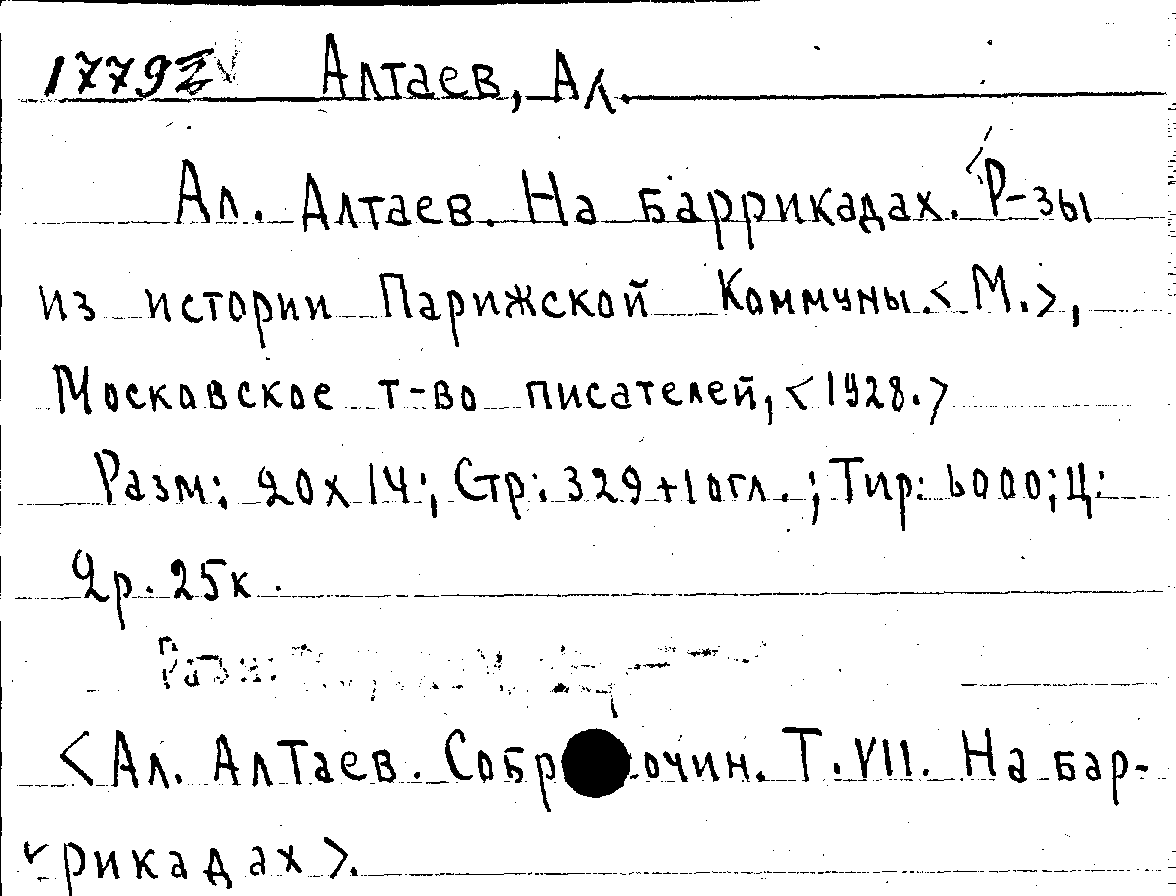 1779 Алтаев, Ал.
Ал. Алтаев. На баррикадах. Р-зы
из истории Парижской Коммуны. <М.>,
Московское т-во писателей, <1928.>
Разм: 20х14; Стр: 329+1огл.; Тир: 6000; Ц:
2р. 25к.
Разм:
<Ал. Алтаев. Собр очин. Т.VII. На бар-
рикадах>.